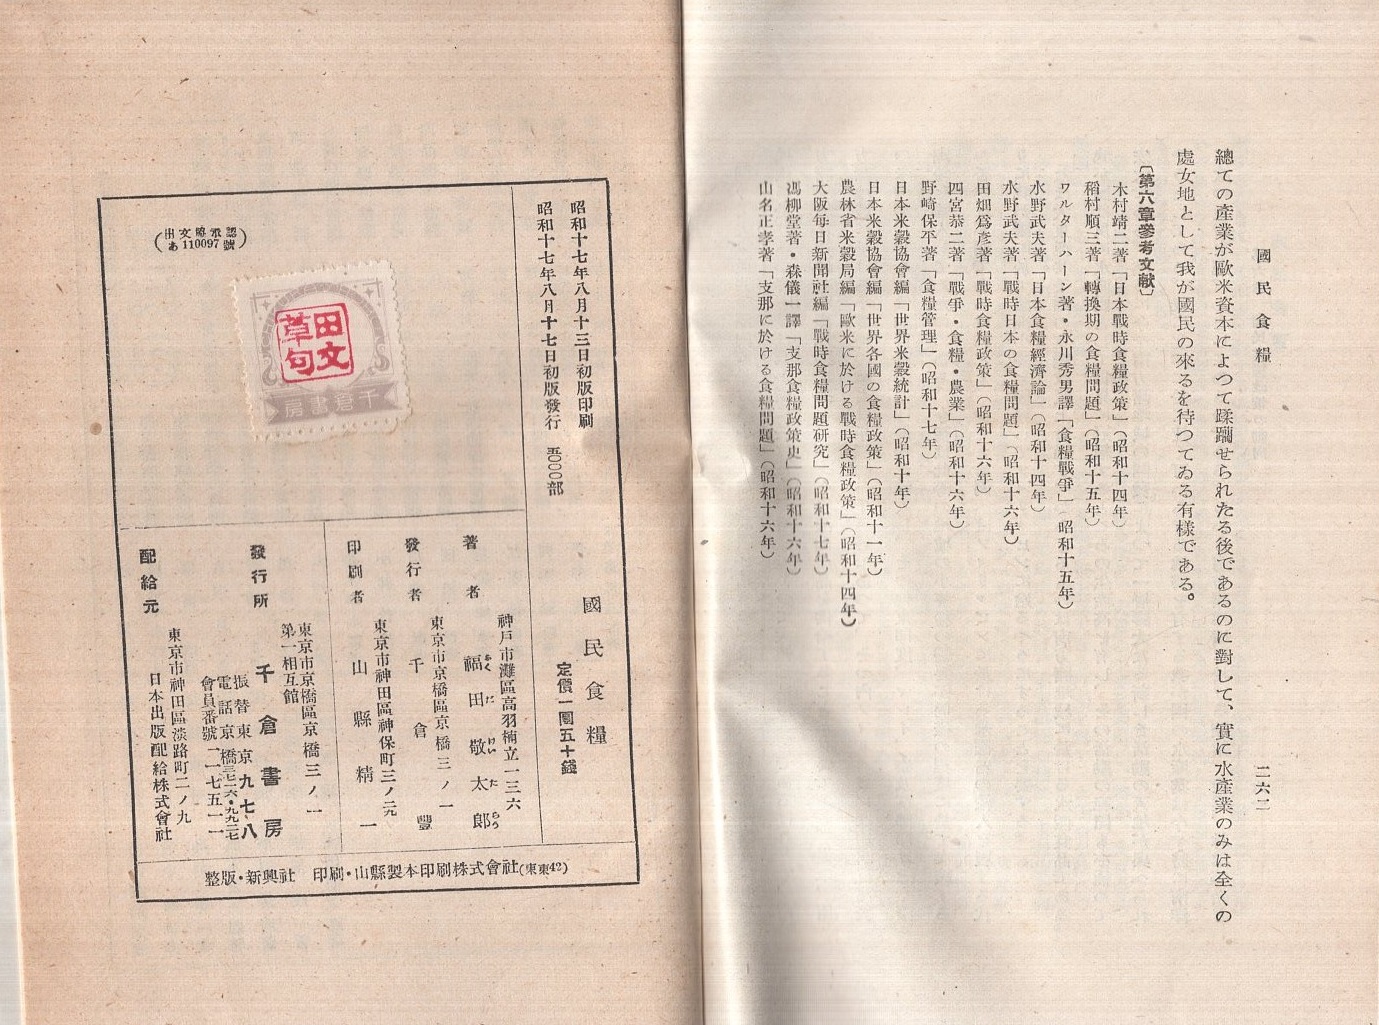 國民食糧
二六二
總ての產業が歐米資本によつて蹂躙せられたる後であるのに對して、實に水產業のみは全くの
處女地として我が國民の來るを待つてゐる有樣である。
〔第六章參考文獻〕
木村靖二著「日本戰時食糧政策」（昭和十四年）
稻村順三著「轉換期の食糧問題」（昭和十五年）
ワルター・ハーン著・永川秀男譯「食糧戰爭」（昭和十五年）
水野武夫著「日本食糧經濟論」（昭和十四年）
水野武夫著「戰時日本の食糧問題」（昭和十六年）
田畑爲彥著「戰時食糧政策」（昭和十六年）
四宮恭二著「戰爭・食糧・農業」（昭和十六年）
野崎保平著「食糧管理」（昭和十七年）
日本米穀協會編「世界米穀統計」（昭和十年）
日本米穀協會編「世界各國の食糧政策」（昭和十一年）
農林省米穀局編「歐米に於ける戰時食糧政策」（昭和十四年）
大阪每日新聞社編「戰時食糧問題研究」（昭和十七年）
馮柳堂著・森儀一譯「支那食糧政策史」（昭和十六年）
山名正孝著「支那に於ける食糧問題」（昭和十六年）
昭和十七年八月十三日初版印刷
昭和十七年八月十七日初版發行 五〇〇〇部
出文協承認
あ110097號
千倉書房
國民食糧
定價一圓五十錢
神戶市灘區高羽楠立一三六
著者 福田敬太郎
ふくだけいたらう
東京市京橋區京橋三ノ一
發行者 千倉豐
東京市神田區神保町三ノ二九
印刷者 山縣精一
東京市京橋區京橋三ノ一
第一相互館
發行所 千倉書房
振替東京九七八
電話京橋
會員番號 一一七五一一
東京市神田區淡路町二ノ九
配給元 日本出版配給株式會社
整版・新興社 印刷・山縣製本印刷株式會社(東東42)